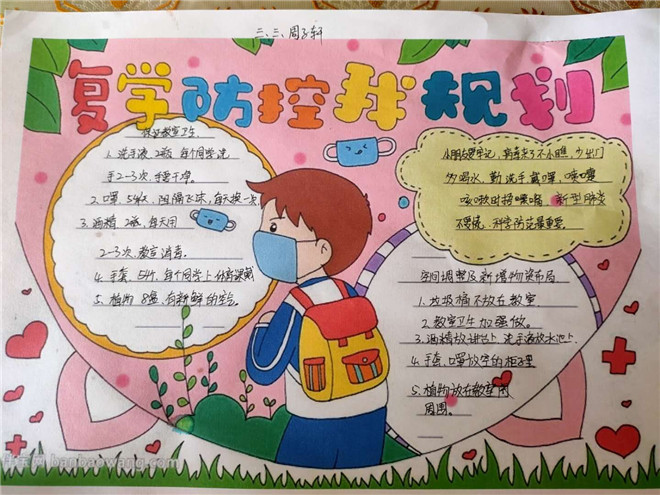 三、三、周子轩
复学防控我规划
保证教室卫生
1. 洗手液 2瓶, 每个同学洗
手2-3次, 手要干净。
2. 口罩, 54个, 阻隔飞沫, 每天换一次
3. 酒精 2瓶, 每天用
2-3次, 教室消毒。
4. 手套, 54个, 每个同学上
5. 植物 8盆, 有新鲜的空气
小朋友要牢记, 病毒来了不小瞧, 少出门
多喝水, 勤洗手戴口罩, 咳嗽
咳嗽时捂嘴 新型肺炎
不要慌, 科学防范最重要。
空间调整及新增物资布局
1. 垃圾桶不放在教室
2. 教室卫生加强做。
3. 酒精放讲台上, 洗手液放水池上
4. 手套, 口罩放空的柜子里
5. 植物放在教室四
周围。
banbaowang.com